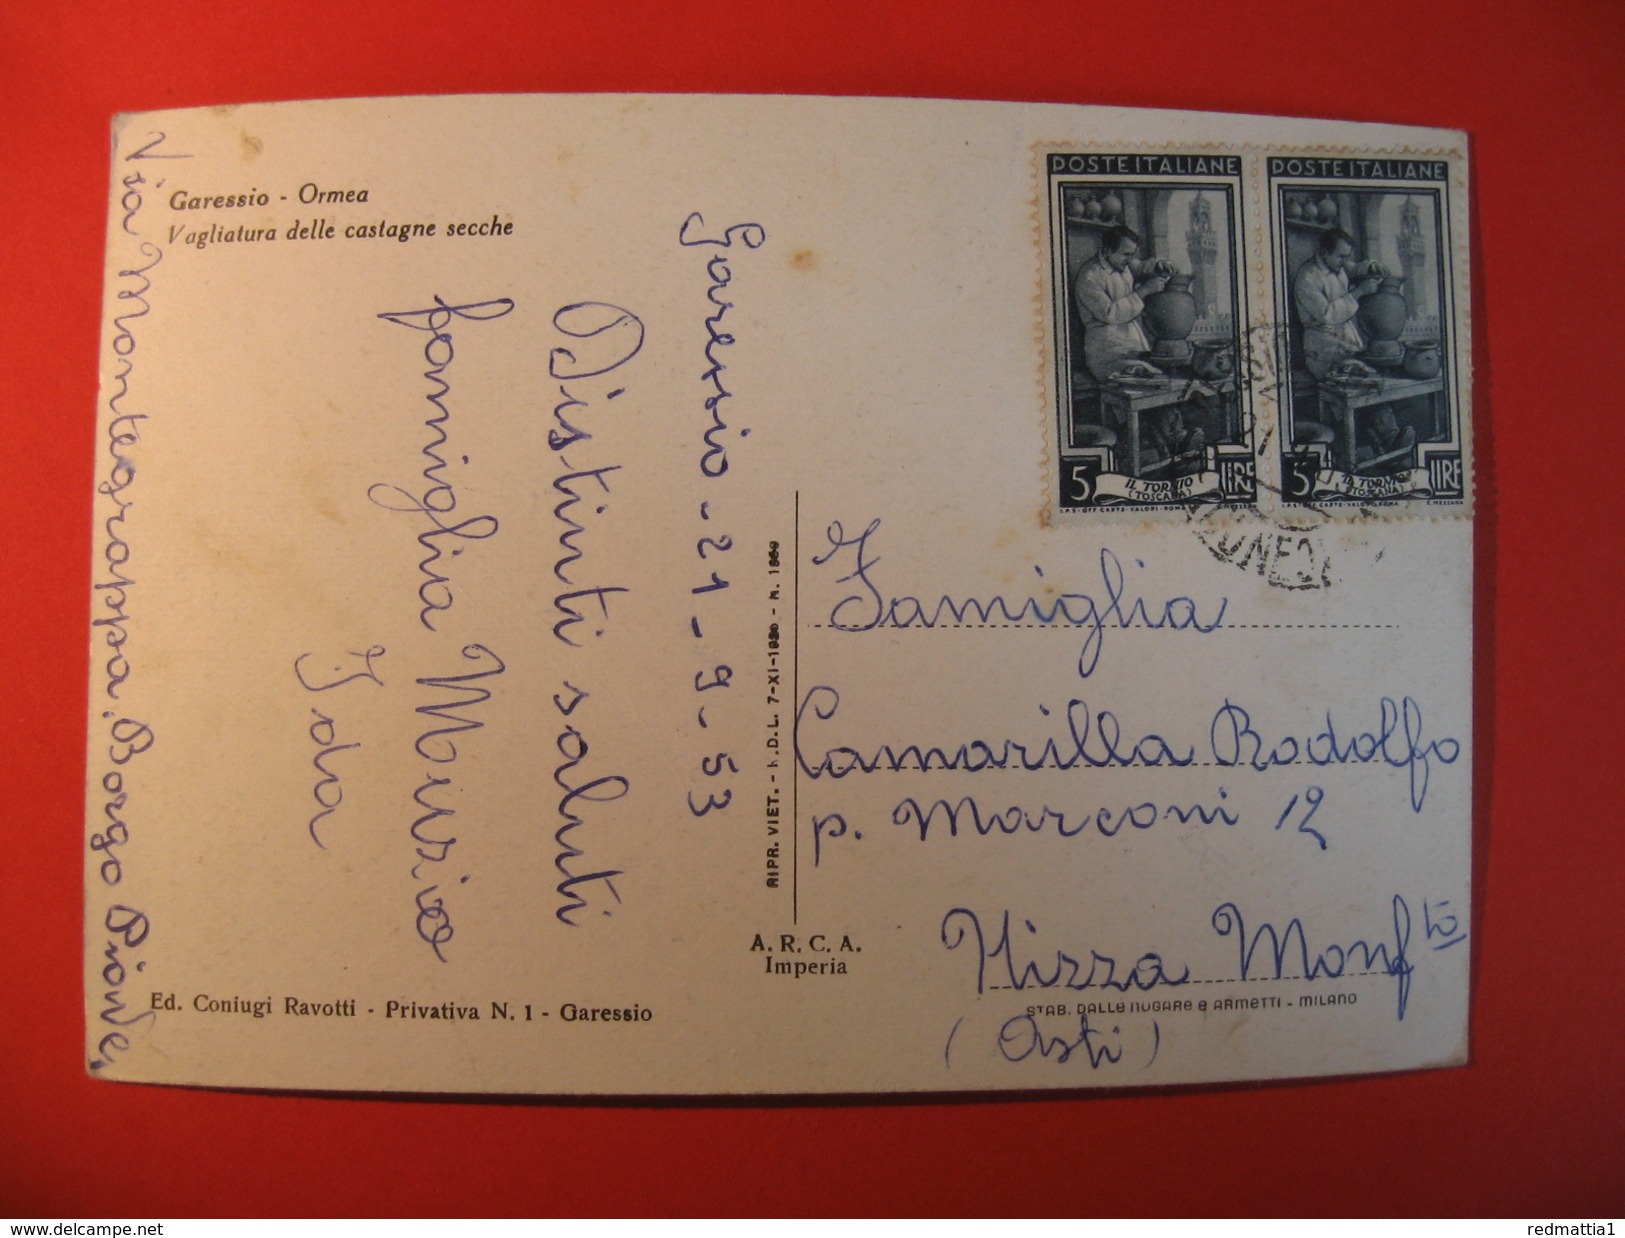 Garessio - Ormea
Vagliatura delle castagne secche
Garessio - 21 - 9 - 53
Distinti saluti
famiglia Murizio
Ida
Via Montegrappa. Borgo Piave,
Ed. Coniugi Ravotti - Privativa N. 1 - Garessio
RIPR. VIET. - N.D.L. 7-XI-19
A. R. C. A.
Imperia
POSTE ITALIANE
5 LIRE
IL TORNIO
(TOSCANA)
I.P.S-OFF CARTE-VALORI-ROMA C. MEZZANA
POSTE ITALIANE
5 LIRE
IL TORNIO
(TOSCANA)
I.P.S-OFF CARTE-VALORI-ROMA C. MEZZANA
Famiglia
Camarilla Rodolfo
p. Marconi 12
Nizza Monfto
STAB. DALLE NOGARE e ARMETTI - MILANO
(Asti)
www.delcampe.net
redmattia1